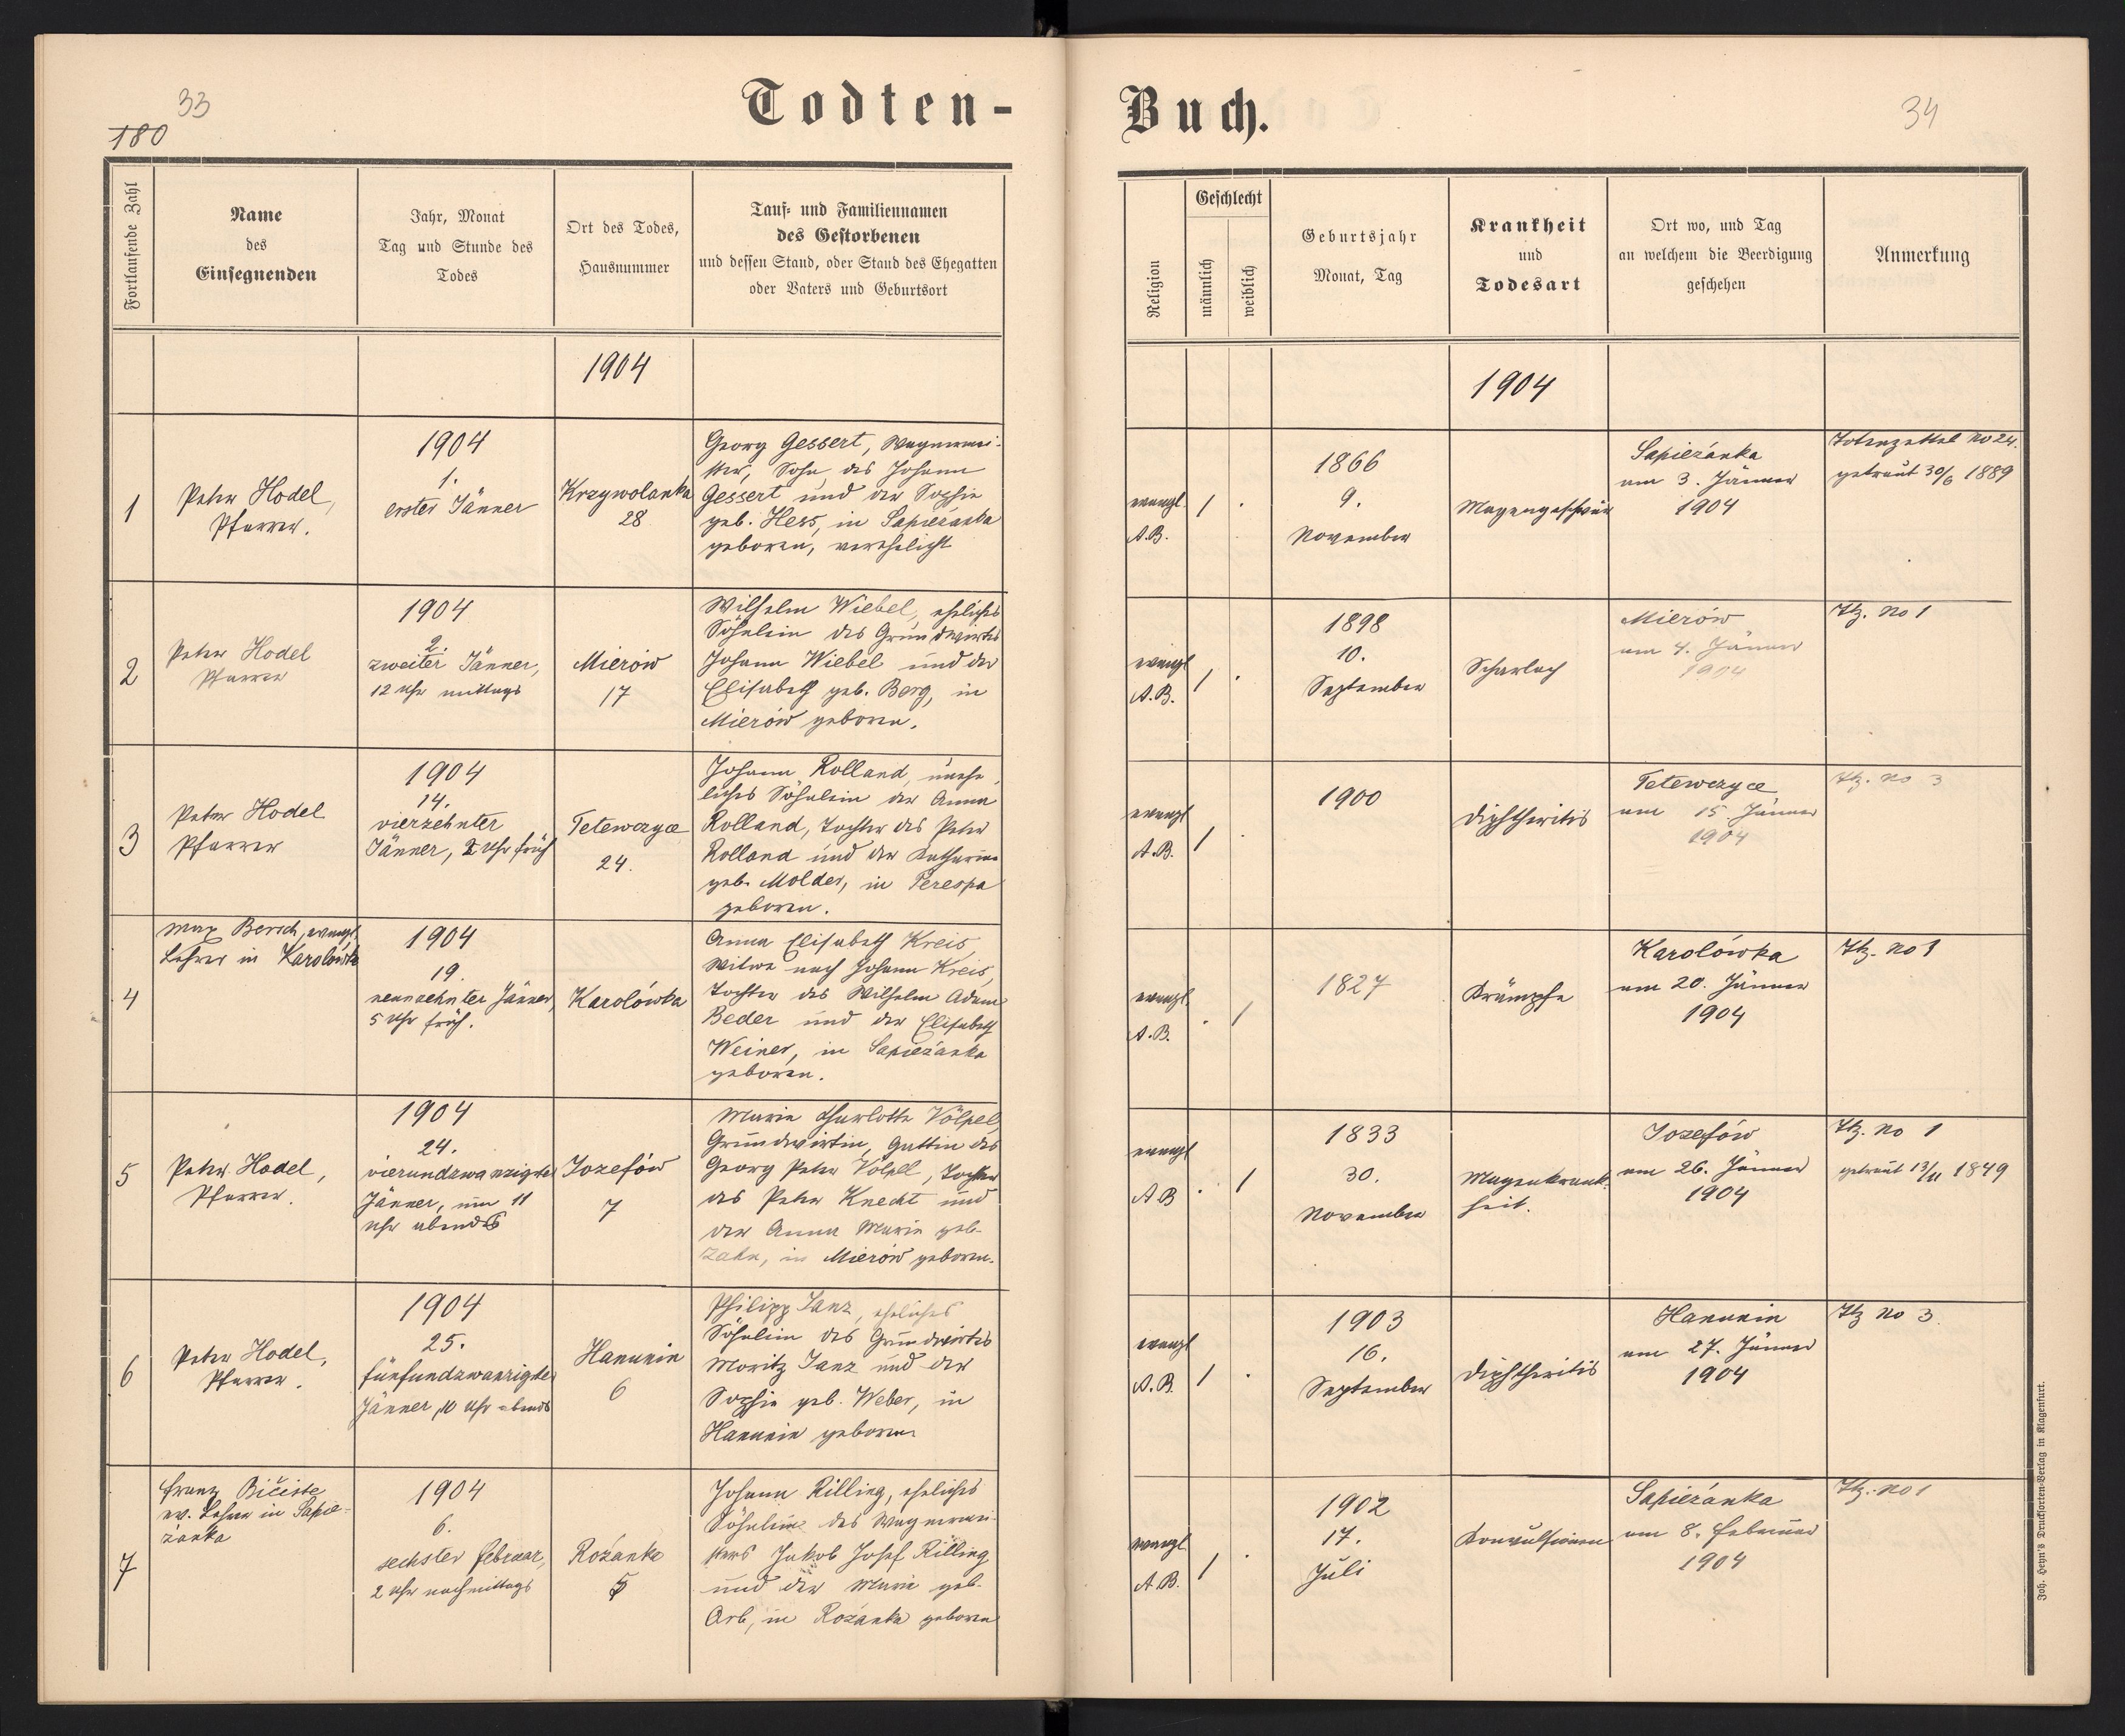 33
180
Todten-
Fortlaufende Zahl
Name
des
Einsegnenden
Jahr, Monat
Tag und Stunde des
Todes
Ort des Todes,
Hausnummer
Tauf- und Familiennamen
des Gestorbenen
und dessen Stand, oder Stand des Ehegatten
oder Vaters und Geburtsort
1904
1
Peter Hodel,
Pfarrer.
1904
1.
erster Jänner
Krzywolanka
28
Georg Gessert, Wagnermei-
ster, Sohn des Johann
Gessert und der Sophie
geb. Hess, in Sapieżanka
geboren, verehelicht
2
Peter Hodel
Pfarrer
1904
2.
zweiter Jänner,
12 Uhr mittags
Mierów
17
Wilhelm Wiebel, eheliches
Söhnlein des Grundwirtes
Johann Wiebel und der
Elisabeth geb. Berg, in
Mierów geboren.
3
Peter Hodel
Pfarrer
1904
14.
vierzehnter
Jänner, Uhr früh
Tetewczyce
24.
Johann Rolland, unehe-
liches Söhnlein der Anna
Rolland, Tochter des Peter
Rolland und der Katharina
geb. Molder, in Perespa
geboren.
4
Max Bersch, evangl.
Lehrer in Karolówka
1904
19.
neunzehnter Jänner,
5 Uhr früh.
Karolówka
Anna Elisabeth Kreis,
Witwe nach Johann Kreis,
Tochter des Wilhelm Adam
Beder und der Elisabeth
Weiner, in Sapieżanka
geboren.
5
Peter Hodel,
Pfarrer.
1904
24.
vierundzwanzigster
Jänner, um 11
Uhr abends
Jozefów
7
Marie Charlotte Völpel,
Grundwirtin, Gattin des
Georg Peter Völpel, Tochter
des Peter Knecht und
der Anna Marie geb.
Zahn, in Mierów geboren.
6
Peter Hodel,
Pfarrer.
1904
25.
fünfundzwanzigster
Jänner, 10 Uhr abends
Hanunin
6
Philipp Janz, eheliches
Söhnlein des Grundwirtes
Moritz Janz und der
Sophie geb. Weber, in
Hanunin geboren
7
Franz Bičiste
ev. Lehrer in Sapie-
żanka
1904
6.
sechster Februar,
2 Uhr nachmittags
Rożanka
5
Johann Rilling, eheliches
Söhnlein des Wagnermei-
sters Jakob Josef Rilling
und der Marie geb.
Arb, in Rożanka geboren
Buch.
34
Religion
Geschlecht
männlich
weiblich
Geburtsjahr
Monat, Tag
Krankheit
und
Todesart
Ort wo, und Tag
an welchem die Beerdigung
geschehen
Anmerkung
1904
evangl.
A.B.
1
.
1866
9.
November
Magengeschwür
Sapieżanka
am 3. Jänner
1904
Totenzettel No 24.
getraut 30/6 1889
evangl
A.B.
1
.
1898
10.
September
Scharlach
Mierów
am 4. Jänner
1904
Ttz. No 1
evangl
A.B.
1
.
1900
Diphtheritis
Tetewczyce
am 15. Jänner
1904
Ttz. No 3
evangl
A.B.
.
1
1827
Krämpfe
Karolówka
am 20. Jänner
1904
Ttz. No 1
evangl
A B
.
1
1833
30.
November
Magenkrank-
heit.
Jozefów
am 26. Jänner
1904
Ttz. No 1
getraut 13/11 1849
evangl
A.B.
1
.
1903
16.
September
Diphtheritis
Hanunin
am 27. Jänner
1904
Ttz No 3.
evangl
A.B.
1
.
1902
17.
Juli
Konvulsionen
Sapieżanka
am 8. Februar
1904
Ttz. No 1
Joh. Heyn's Drucksorten-Verlag in Klagenfurt.